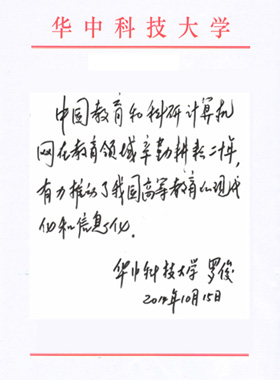 华中科技大学
中国教育和科研计算机
网在教育领域辛勤耕耘二十年,
有力推动了我国高等教育的现代
化和信息化.
华中科技大学 罗俊
2014年10月15日